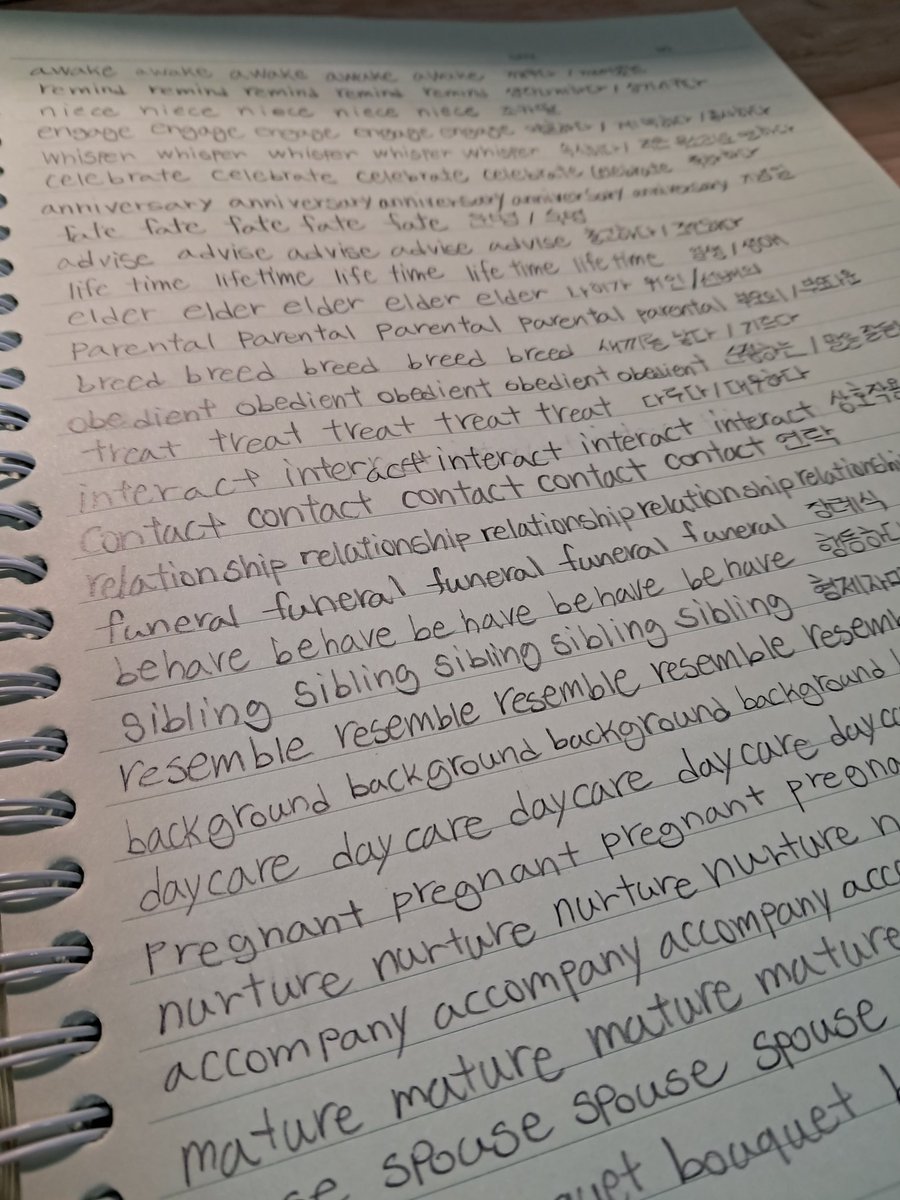 awake awake awake awake awake
remind remind remind remind remind
niece niece niece niece niece 조카딸
engage engage engage engage engage
whisper whisper whisper whisper whisper
celebrate celebrate celebrate celebrate celebrate 축하하다
anniversary anniversary anniversary anniversary anniversary 기념일
fate fate fate fate fate 운명 / 숙명
advise advise advise advise advise 충고하다 / 조언하다
life time lifetime life time life time life time 일생 / 생애
elder elder elder elder elder 나이가 위인 /
parental parental parental parental parental 부모의 /
breed breed breed breed breed 새끼를 낳다 / 기르다
obedient obedient obedient obedient obedient 순종하는 / 말을 잘 듣
treat treat treat treat treat 다루다 / 대우하다
interact interact interact interact interact 상호작용
contact contact contact contact contact 연락
relationship relationship relationship relationship relationshi
funeral funeral funeral funeral funeral 장례식
behave behave be have be have be have 행동하다
sibling sibling sibling sibling sibling 형제자매
resemble resemble resemble resemble resemb
background background background background b
daycare day care daycare day care dayca
pregnant pregnant pregnant pregna
nurture nurture nurture nurture n
accompany accompany accompany acco
mature mature mature mature
se spouse spouse spouse
quet bouquet b